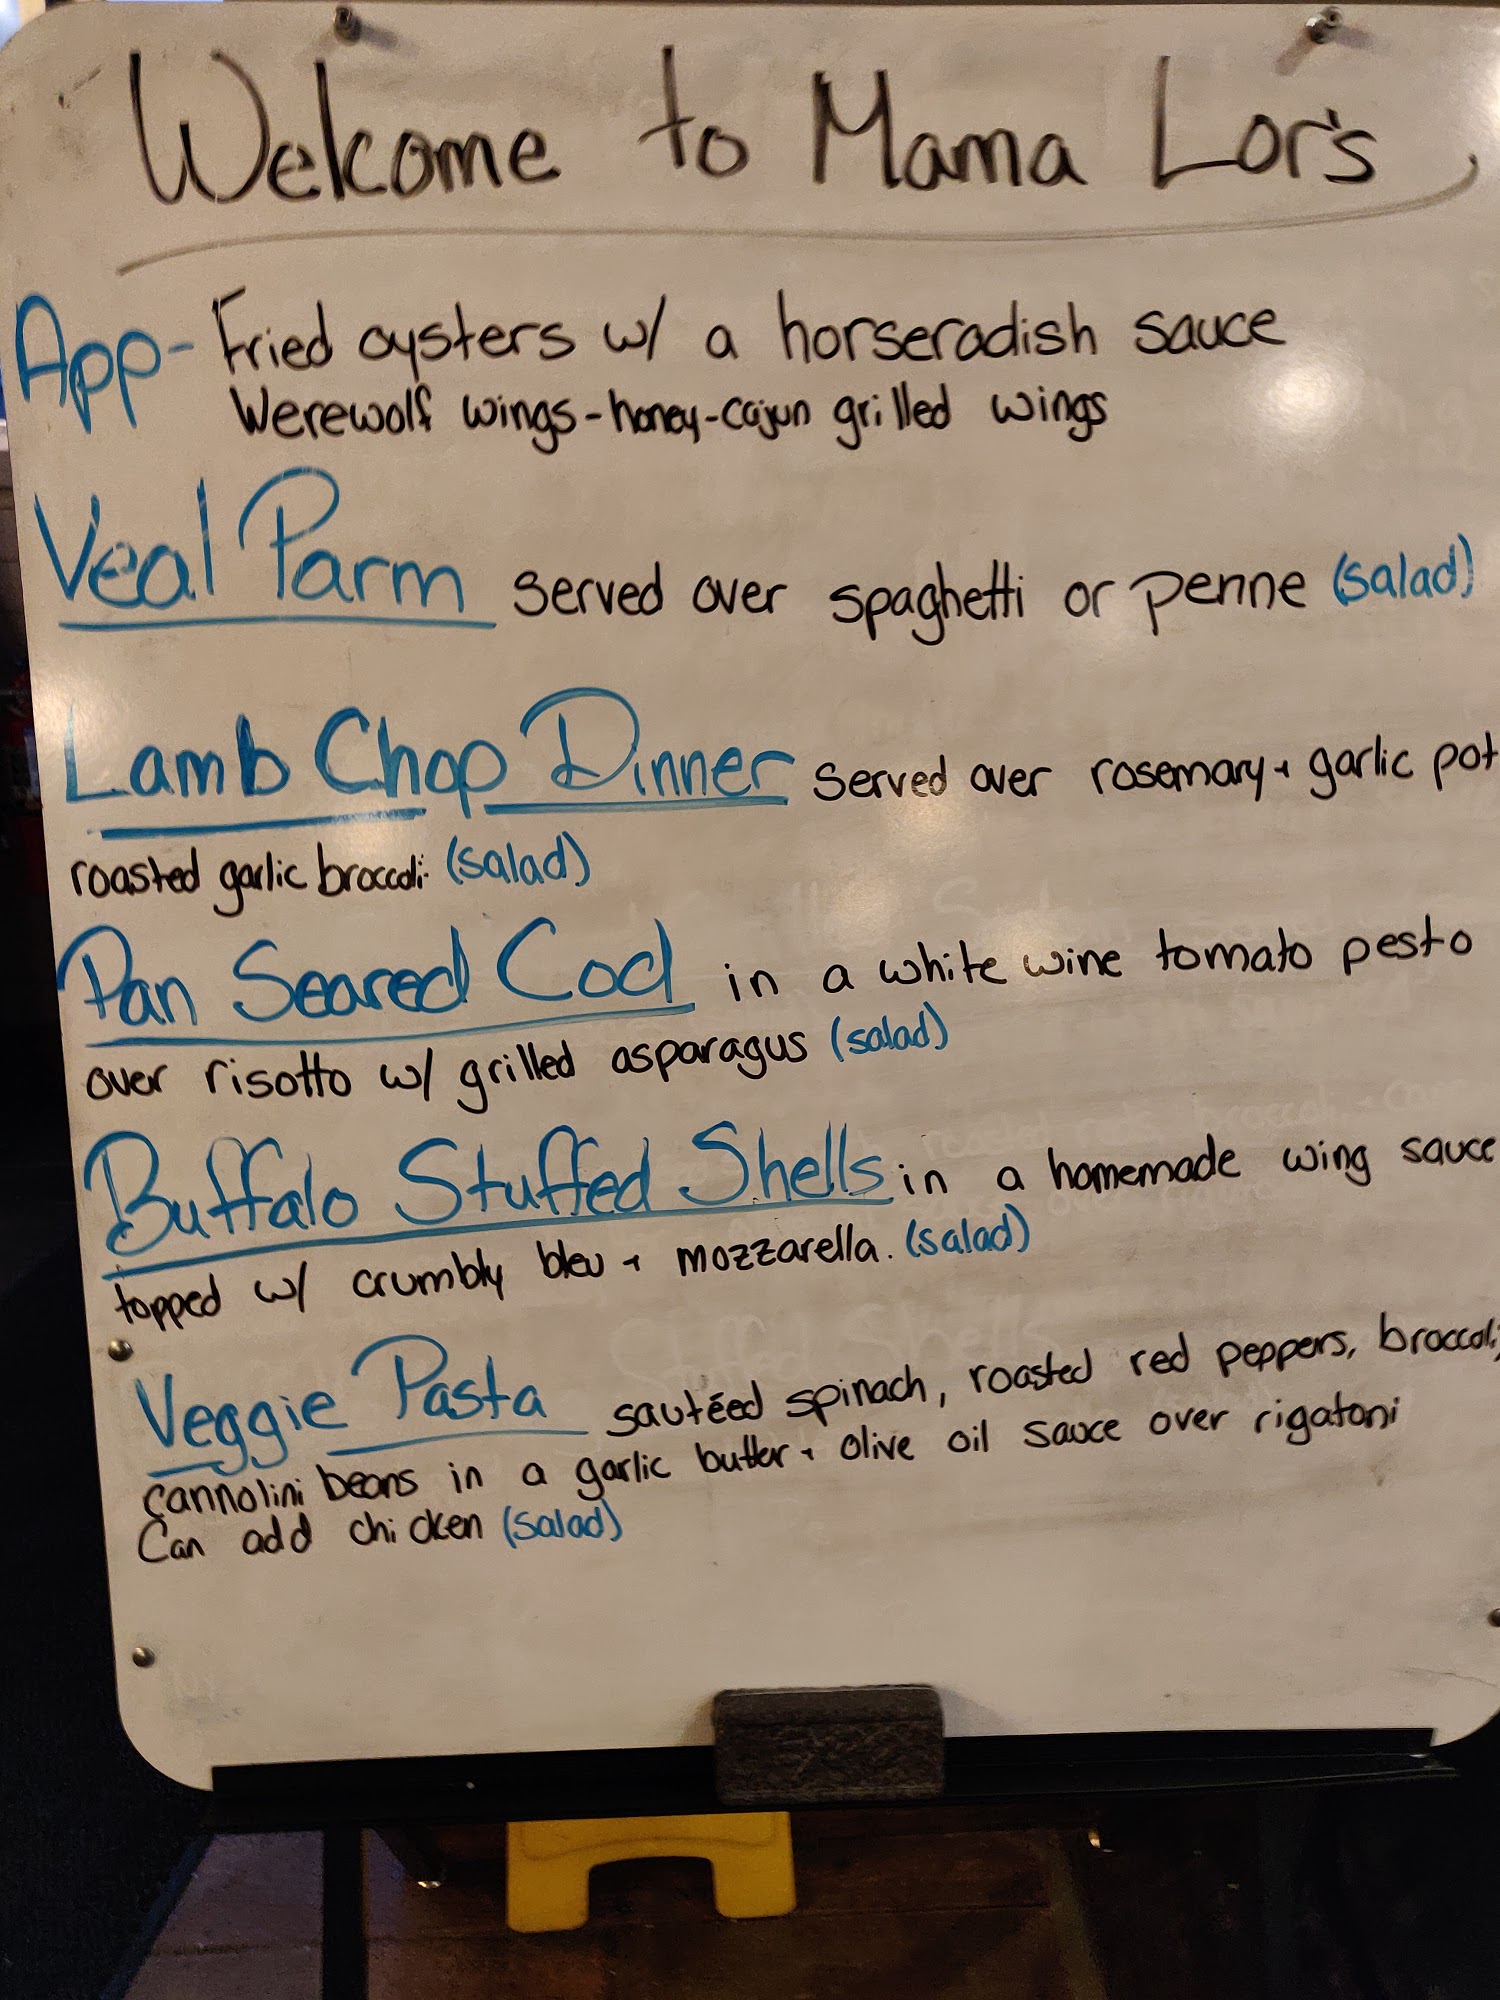 Welcome to Mama Lor's
App- Fried oysters w/ a horseradish sauce
Werewolf wings-honey-cajun grilled wings
Veal Parm served over spaghetti or penne (salad)
Lamb Chop Dinner served over rosemary + garlic pot
roasted garlic broccoli (salad)
Pan Seared Cod in a white wine tomato pesto
over risotto w/ grilled asparagus (salad)
Buffalo Stuffed Shells in a homemade wing sauce
topped w/ crumbly bleu + mozzarella. (salad)
Veggie Pasta sautéed spinach, roasted red peppers, broccoli,
cannolini beans in a garlic butter + olive oil sauce over rigatoni
Can add chicken (salad)